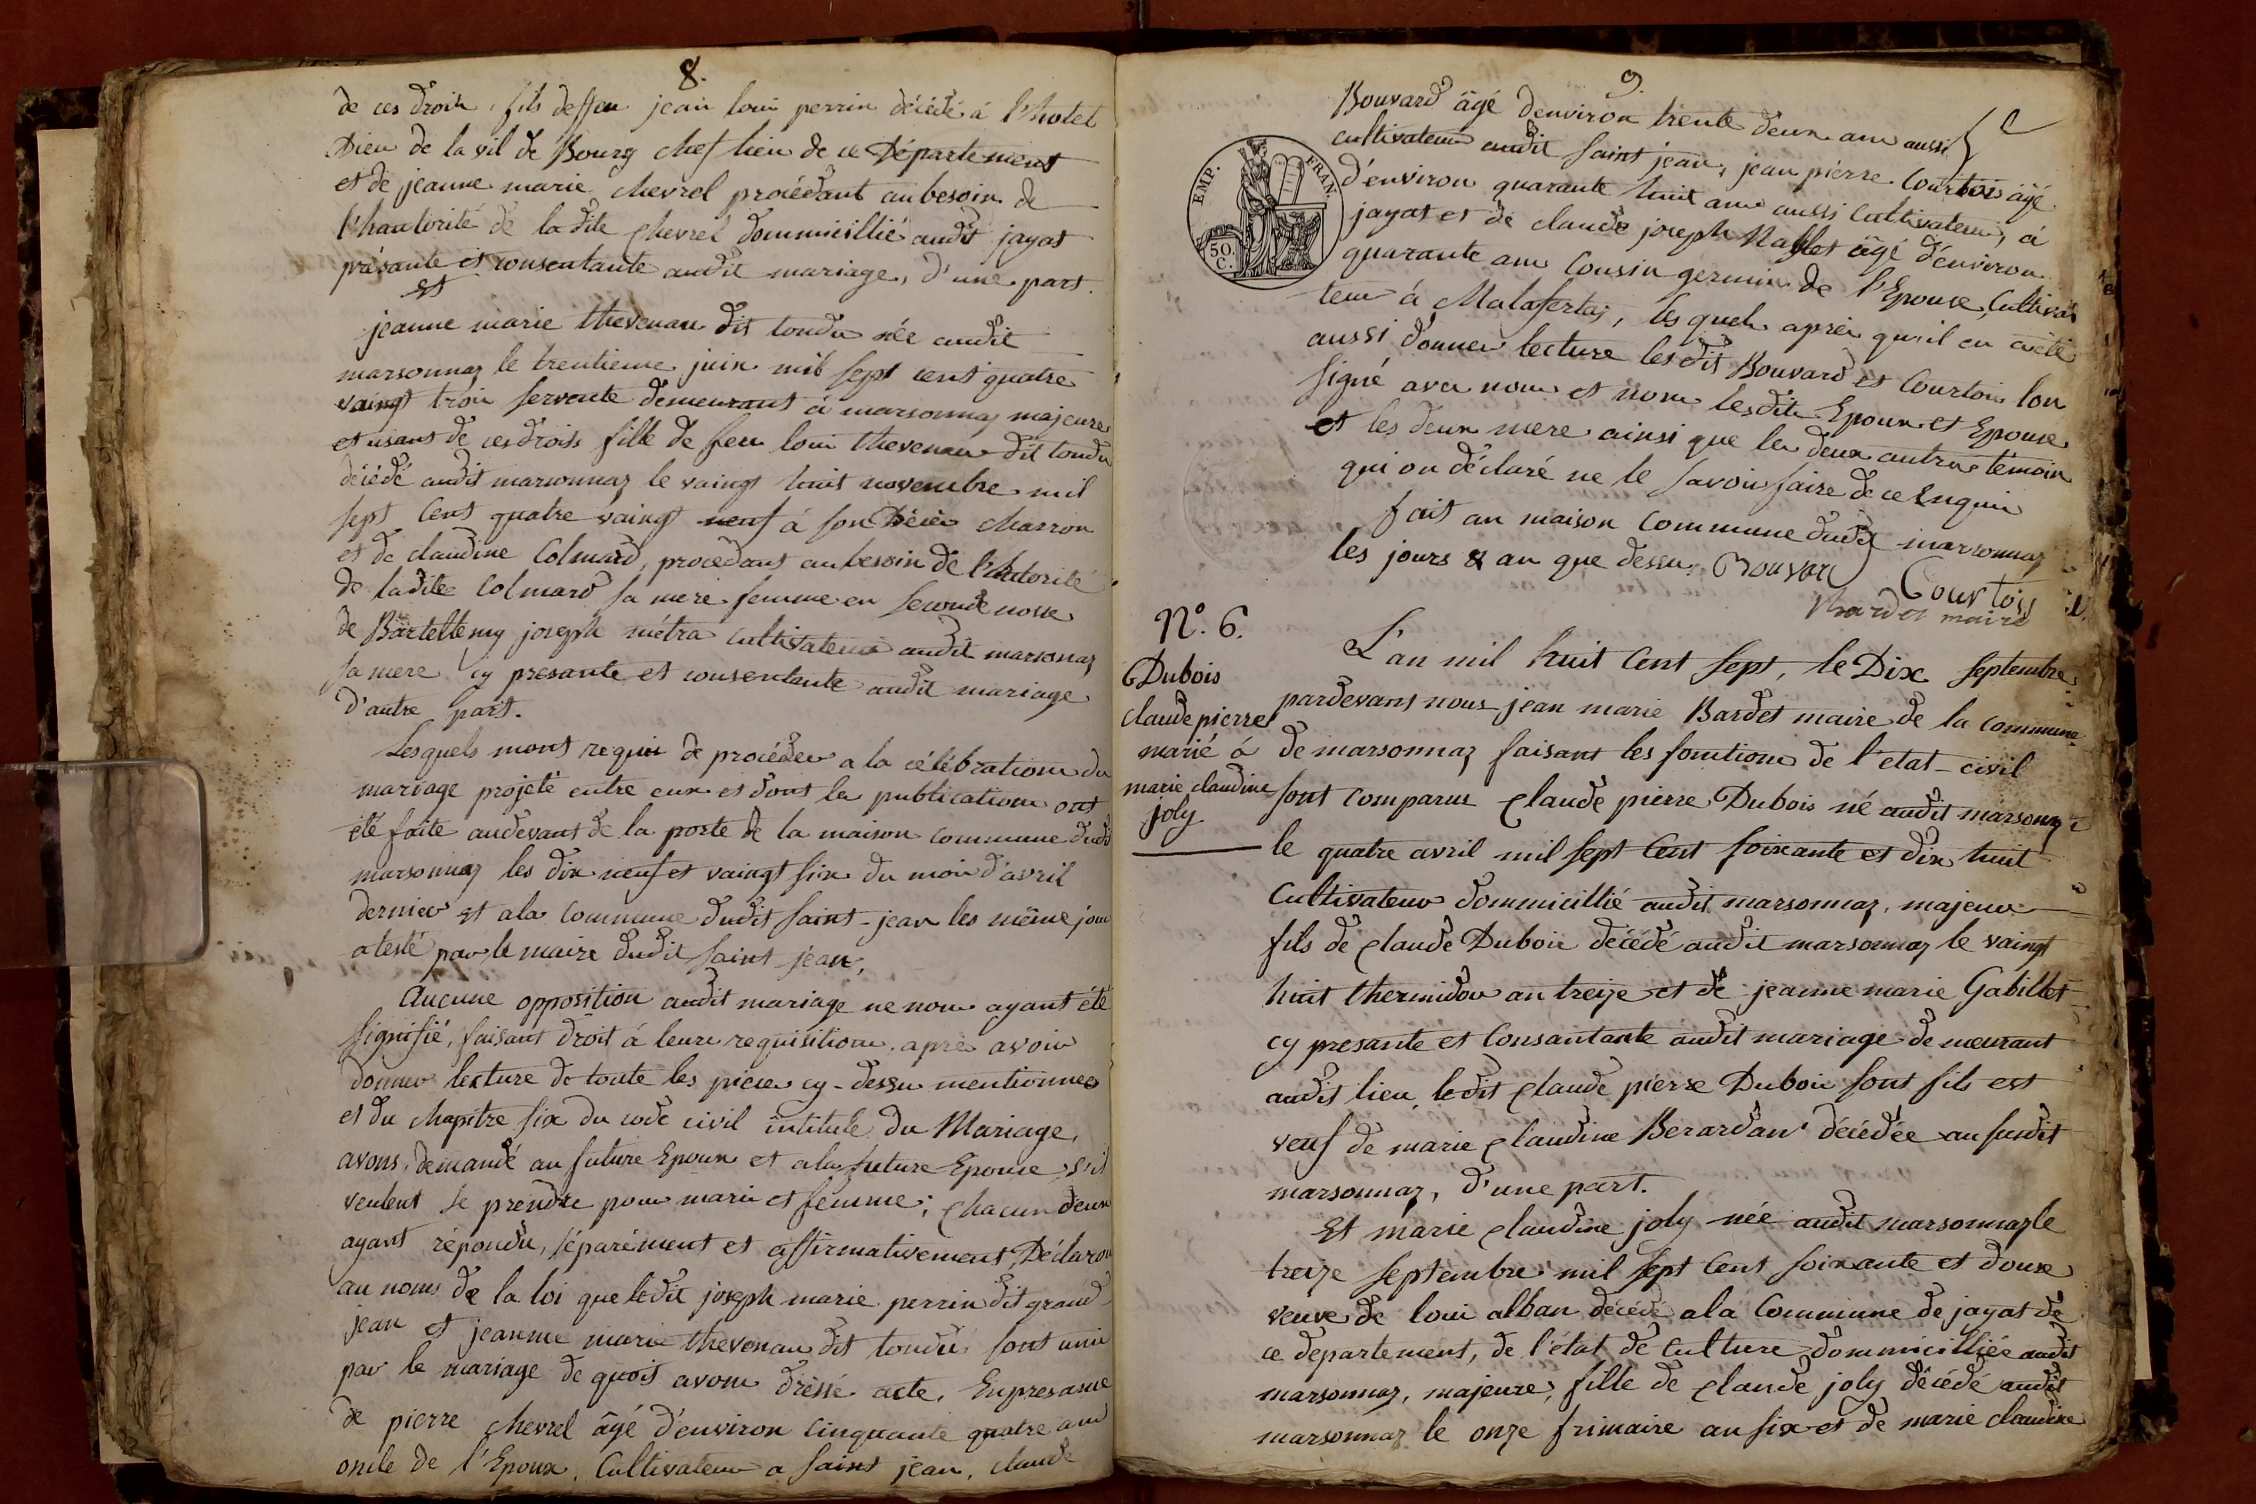 8.
de ces droits, fils deffeu jean loui perrin décédé á l'hotel
Dieu de la vil de Bourg chef lieu de ce Département
et de jeanne marie chevrel procédant au besoin de
l'hautorité de la dite chevrel dommicillié audit jayat
présante et consentante audit mariage, d'une part.
Et
jeanne marie thevenau dit tondu née audit
marsonnaz le trentieme juin mil sept cent quatre
vaingt troi servente demeurant á marsonnaz majeure
et usant de ces droits fille de feu loui thevenau dit tondu
décédé audit marsonnaz le vaingt huit novembre mil
sept Cent quatre vaingt neuf á son Décès charron
et de claudine Colmard, procédant au besoin de l'hutorité
de ladite Colmard sa mere femme en seconde nosse
de Bartellemy joseph métra cultivateur audit marsonnaz
sa mere cy presante et consentante audit mariage
d'autre part.
Lesquels mont requis de procéder a la célébration du
mariage projeté entre eux et dont les publications ont
été faite audevant de la porte de la maison commune dudit
marsonnaz les dix neuf et vaingt six du moi d'avril
dernier et ala commune dudit saint-jean les même jour
atesté par le maire dudit saint jean,
Aucune opposition audit mariage ne nous ayant été
signifié, faisant droit á leure requisition, après avoir
donner lecture de toute les piece cy-dessu mentionnee
et du chapitre six du code civil intitulé du Mariage,
avons demandé au future Epoux et ala future Epouse s'ils
veulent se prendre pour mari et femme; chacun d'eux
ayant répondu, séparément et affirmativement, Déclaron
au nom de la loi que ledit joseph marie perrin dit grand
jean et jeanne marie thevenau dit tondu sont uni
par le mariage de quois avons dressé acte. En presance
de pierre chevrel âgé d'environ Cinquante quatre ans
oncle de l'Epoux, Cultivateur a saint jean, claude
9.
Bouvard âgé d'environ trente deux ans aussi
cultivateur audit saint jean, jean pierre Courtois âgé
d'environ quarante huit ans aussi cultivateur, á
jayat et de claude joseph Nallet âgé d'environ
quarante ans Cousin germin de l'Epouse, Cultiva
teur á Malafertaz, lesquels après qu'il en aiété
aussi donner lecture lesdit Bouvard et Courtois lon
signé avec nous et nom lesdits Epoux et Epouse
et les deux mere ainsi que les deux autres temoin
qui on déclaré ne le savoir faire de ce Enquis
fait an maison Commune dudit marsonnaz
les jours & an que dessu. Bouvard
Courtois
Bardet maire
EMP. FRAN.
50 C.
N.° 6.
Dubois
claude pierre
marié á
marie claudine
joly
L'an mil huit Cent sept, le Dix septembre
pardevant nous jean marie Bardet maire de la commune
de marsonnaz faisant les fonctions de l'etat-civil
sont comparus claude pierre Dubois né audit marsonnaz
le quatre avril mil sept Cent soixante et dix huit
Cultivateur dommicillié audit marsonnaz, majeur
fils de claude Dubois décédé audit marsonnaz le vaingt
huit thermidor an treize et de jeanne marie Gabillet
cy presante et Consantante audit mariage demeurant
audit lieu, ledit claude pierre Dubois sont fils est
veuf de marie claudine Berardan décédée au susdit
marsonnaz, d'une part.
Et marie claudine joly née audit marsonnaz le
treize septembre mil sept Cent soixante et douze
veuve de loui alban décédé ala Commune de jayat de
ce département, de l'état de Culture dommicilliée audit
marsonnaz, majeure, fille de claude joly décédé audit
marsonnaz le onze frimaire an six et de marie claudine